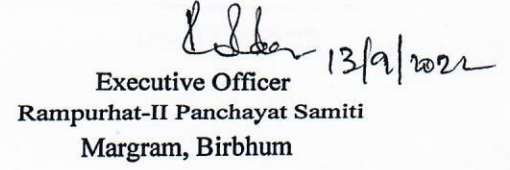 13/9/2022
Executive Officer
Rampurhat-II Panchayat Samiti
Margram, Birbhum